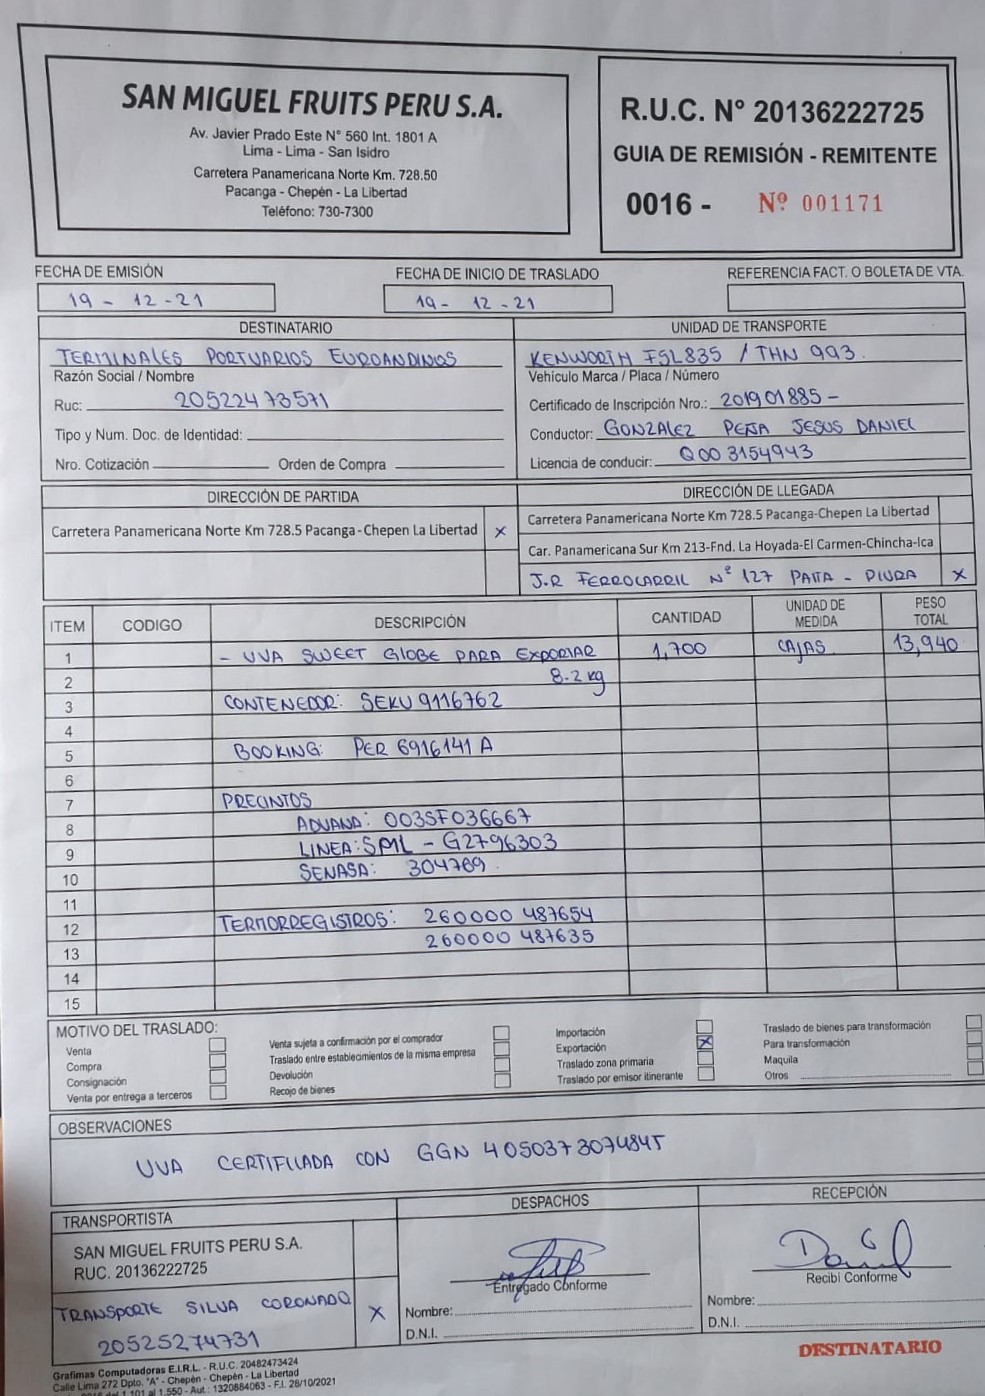 SAN MIGUEL FRUITS PERU S.A.
Av. Javier Prado Este N° 560 Int. 1801 A
Lima - Lima - San Isidro
Carretera Panamericana Norte Km. 728.50
Pacanga - Chepén - La Libertad
Teléfono: 730-7300
R.U.C. N° 20136222725
GUIA DE REMISIÓN - REMITENTE
0016 - Nº 001171
FECHA DE EMISIÓN
19 - 12 - 21
FECHA DE INICIO DE TRASLADO
19 - 12 - 21
REFERENCIA FACT. O BOLETA DE VTA.
DESTINATARIO
TERMINALES PORTUARIOS EUROANDINOS
Razón Social / Nombre
Ruc: 20522473571
Tipo y Num. Doc. de Identidad:
Nro. Cotización Orden de Compra
UNIDAD DE TRANSPORTE
KENWORTH F5L835 / THN 993.
Vehículo Marca / Placa / Número
Certificado de Inscripción Nro.: 201901885 -
Conductor: GONZALEZ PEÑA JESUS DANIEL
Licencia de conducir: Q003154943
DIRECCIÓN DE PARTIDA
Carretera Panamericana Norte Km 728.5 Pacanga-Chepen La Libertad X
DIRECCIÓN DE LLEGADA
Carretera Panamericana Norte Km 728.5 Pacanga-Chepen La Libertad
Car. Panamericana Sur Km 213-Fnd. La Hoyada-El Carmen-Chincha-Ica
J.R FERROCARRIL Nº 127 PAITA - PIURA X
ITEM CODIGO DESCRIPCIÓN CANTIDAD UNIDAD DE MEDIDA PESO TOTAL
1 - UVA SWEET GLOBE PARA EXPORTAR 1,700 CAJAS 13,940
2 8.2 kg
3 CONTENEDOR: SEKU 9116762
4
5 BOOKING: PER 6916141 A
6
7 PRECINTOS
8 ADUANA: 003SF036667
9 LINEA: SML - G2796303
10 SENASA: 304769.
11
12 TERMORREGISTROS: 260000 487654
13 260000 487635
14
15
MOTIVO DEL TRASLADO:
Venta
Compra
Consignación
Venta por entrega a terceros
Venta sujeta a confirmación por el comprador
Traslado entre establecimientos de la misma empresa
Devolución
Recojo de bienes
Importación
Exportación X
Traslado zona primaria
Traslado por emisor itinerante
Traslado de bienes para transformación
Para transformación
Maquila
Otros
OBSERVACIONES
UVA CERTIFICADA CON GGN 4050373074845
TRANSPORTISTA
SAN MIGUEL FRUITS PERU S.A.
RUC. 20136222725
TRANSPORTE SILVA CORONADO X
20525274731
DESPACHOS
Entregado Conforme
Nombre:
D.N.I.
RECEPCIÓN
Daniel
Recibí Conforme
Nombre:
D.N.I.
DESTINATARIO
Grafimas Computadoras E.I.R.L. - R.U.C. 20482473424
Calle Lima 272 Dpto. "A" - Chepén - Chepén - La Libertad
1.101 al 1.550 - Aut.: 1320884063 - F.I. 28/10/2021